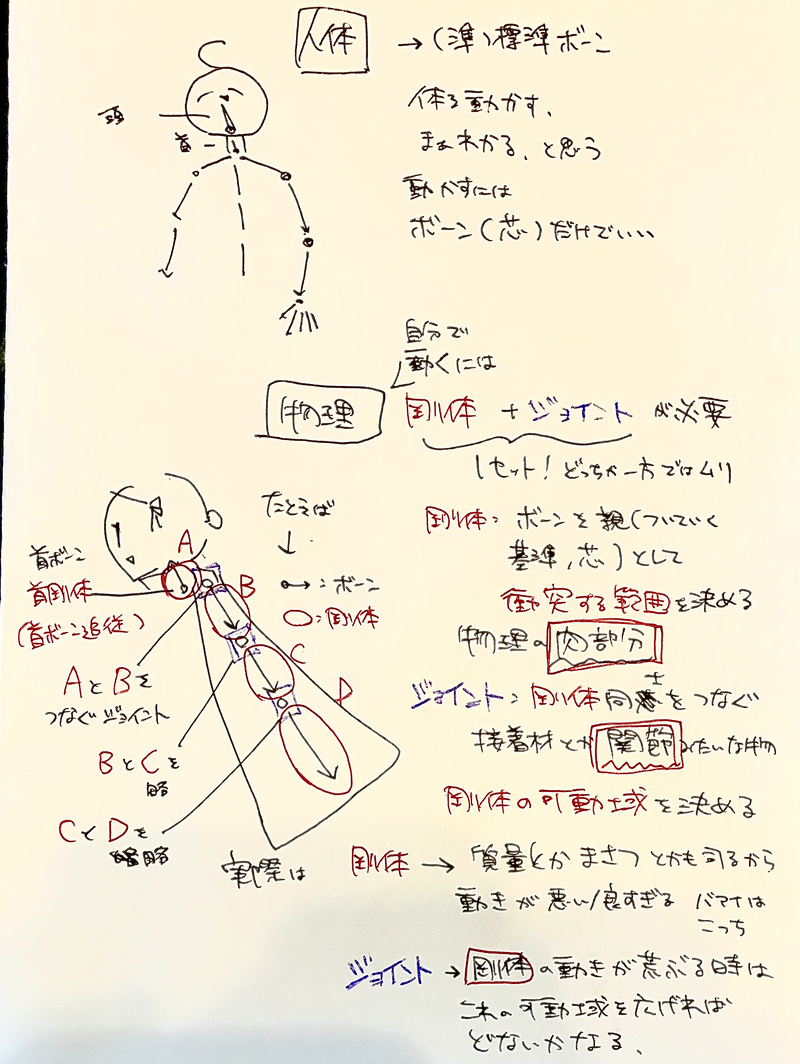 人体 → (準)標準ボーン
頭
首
体を動かす、
まぁわかる、と思う
動かすには
ボーン(芯)だけでいい
自分で
動くには
物理
剛体 + ジョイント が必要
1セット! どっちか一方ではムリ
たとえば
↓
→:ボーン
○:剛体
A
B
C
D
首ボーン
首剛体
(首ボーン追従)
AとBを
つなぐジョイント
BとCを
略
CとDを
略
剛体: ボーンを親(ついていく
基準,芯)として
衝突する範囲を決める
物理の肉部分
ジョイント: 剛体同士をつなぐ
接着材とか関節みたいな物
剛体の可動域を決める
実際は
剛体 → 質量とか まさつ とかも司るから
動きが悪い/良すぎる バアイは
こっち
ジョイント → 剛体の動きが荒ぶる時は
これの可動域を広げれば
どないかなる、